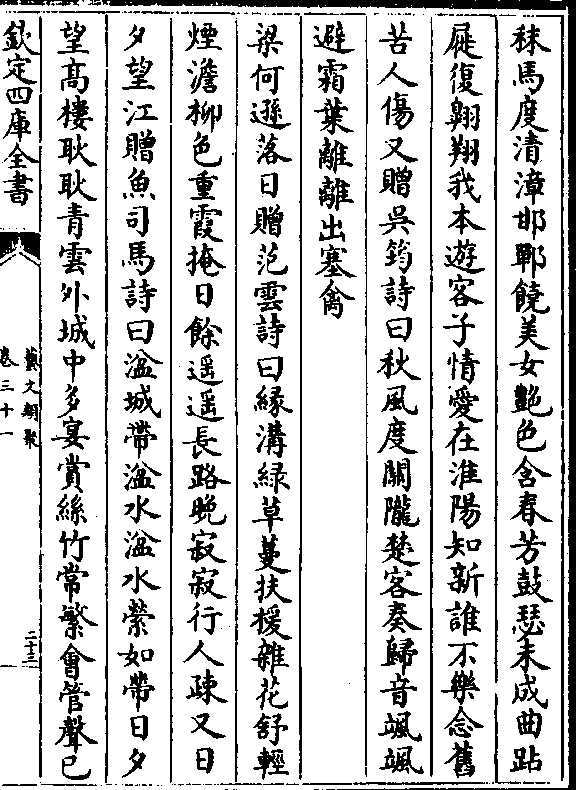 秣馬度清漳邯鄲饒美女艷色含春芳鼓瑟未成曲跕
屣復翺翔我本遊客子情愛在淮陽知新誰不樂念舊
苦人傷又贈吳筠詩曰秋風度關隴楚客奏歸音颯颯
避霜葉離離出塞禽
梁何遜落日贈范雲詩曰緣溝綠草蔓扶楥雜花舒輕
煙澹柳色重霞掩日餘遥遥長路晚寂寂行人疎又日
夕望江贈魚司馬詩曰湓城帶湓水湓水縈如帶日夕
望高樓耿耿青雲外城中多宴賞絲竹常繁會管聲已
欽定四庫全書
藝文類聚
卷三十一
二十三